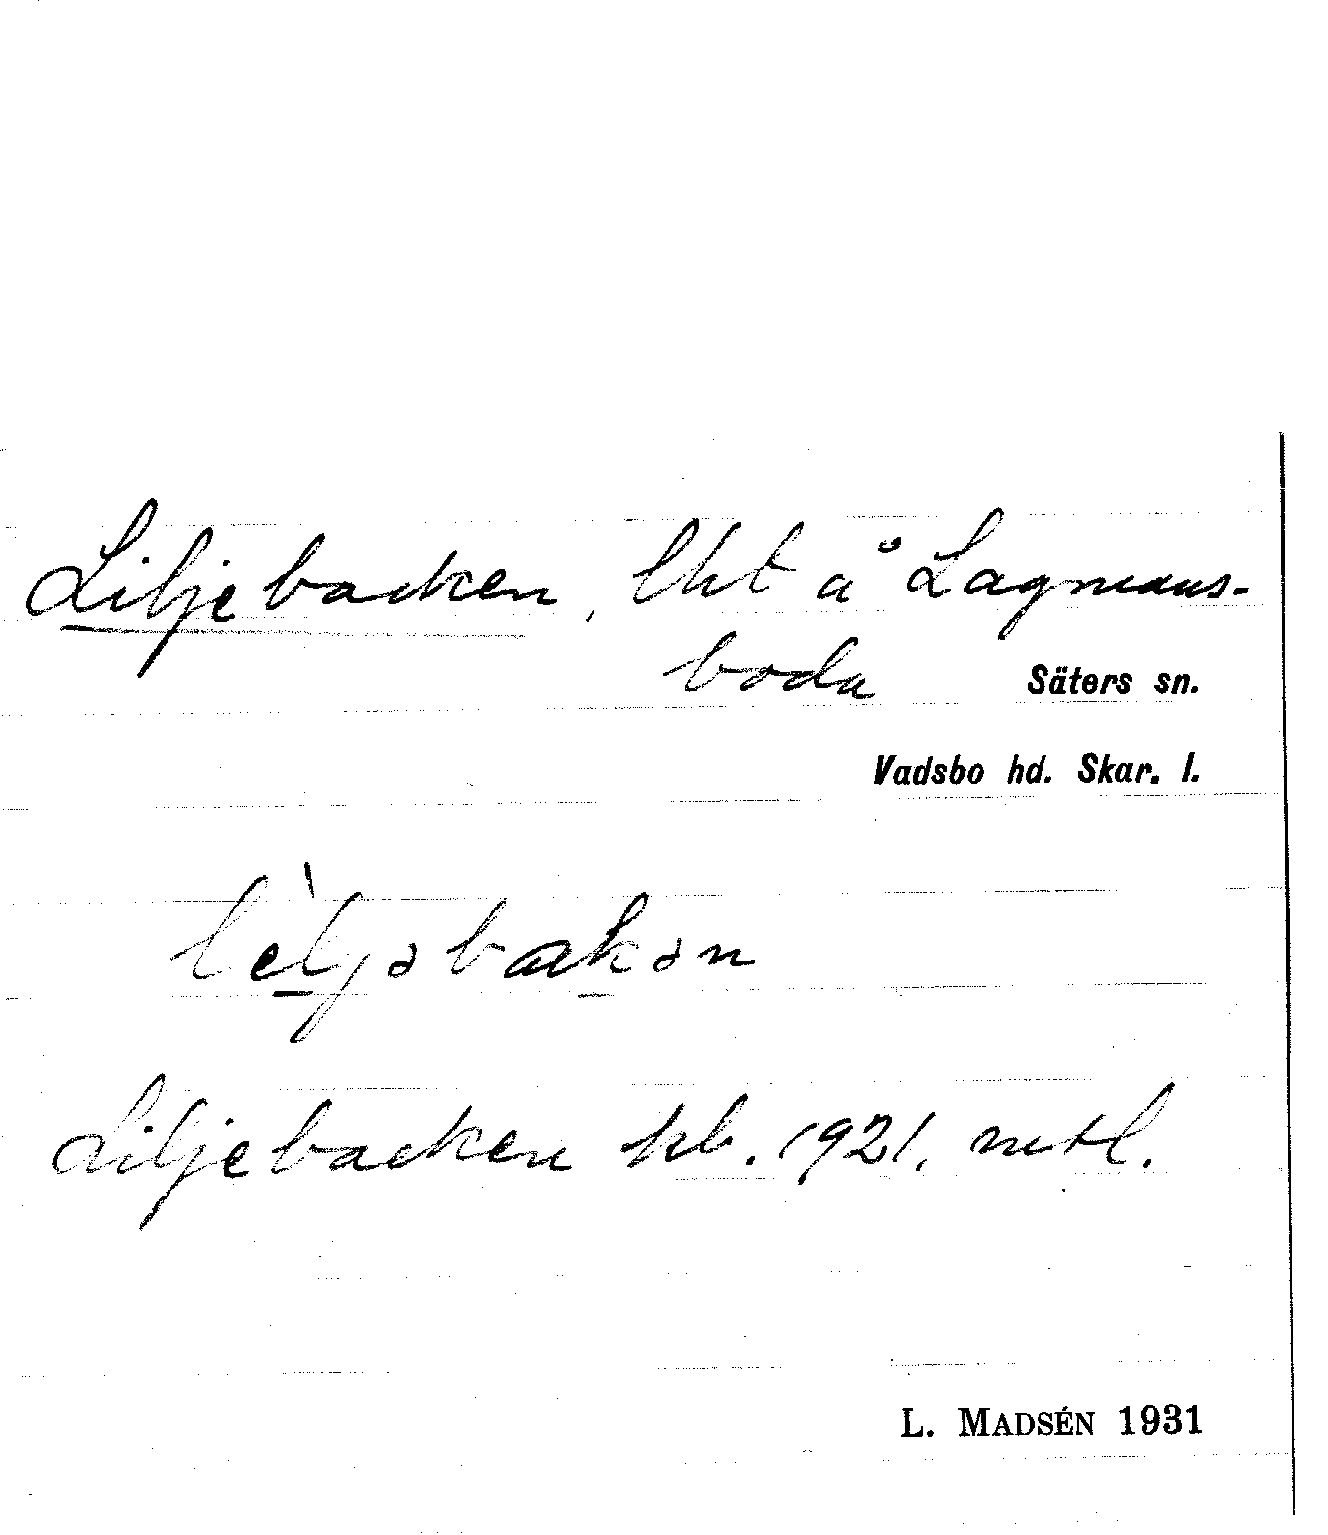 Liljebacken, lht å Lagmans-
boda Säters sn.
Vadsbo hd. Skar. l.
lèljəbakən
Liljebacken kb. 1921, mtl.
L. MADSÉN 1931